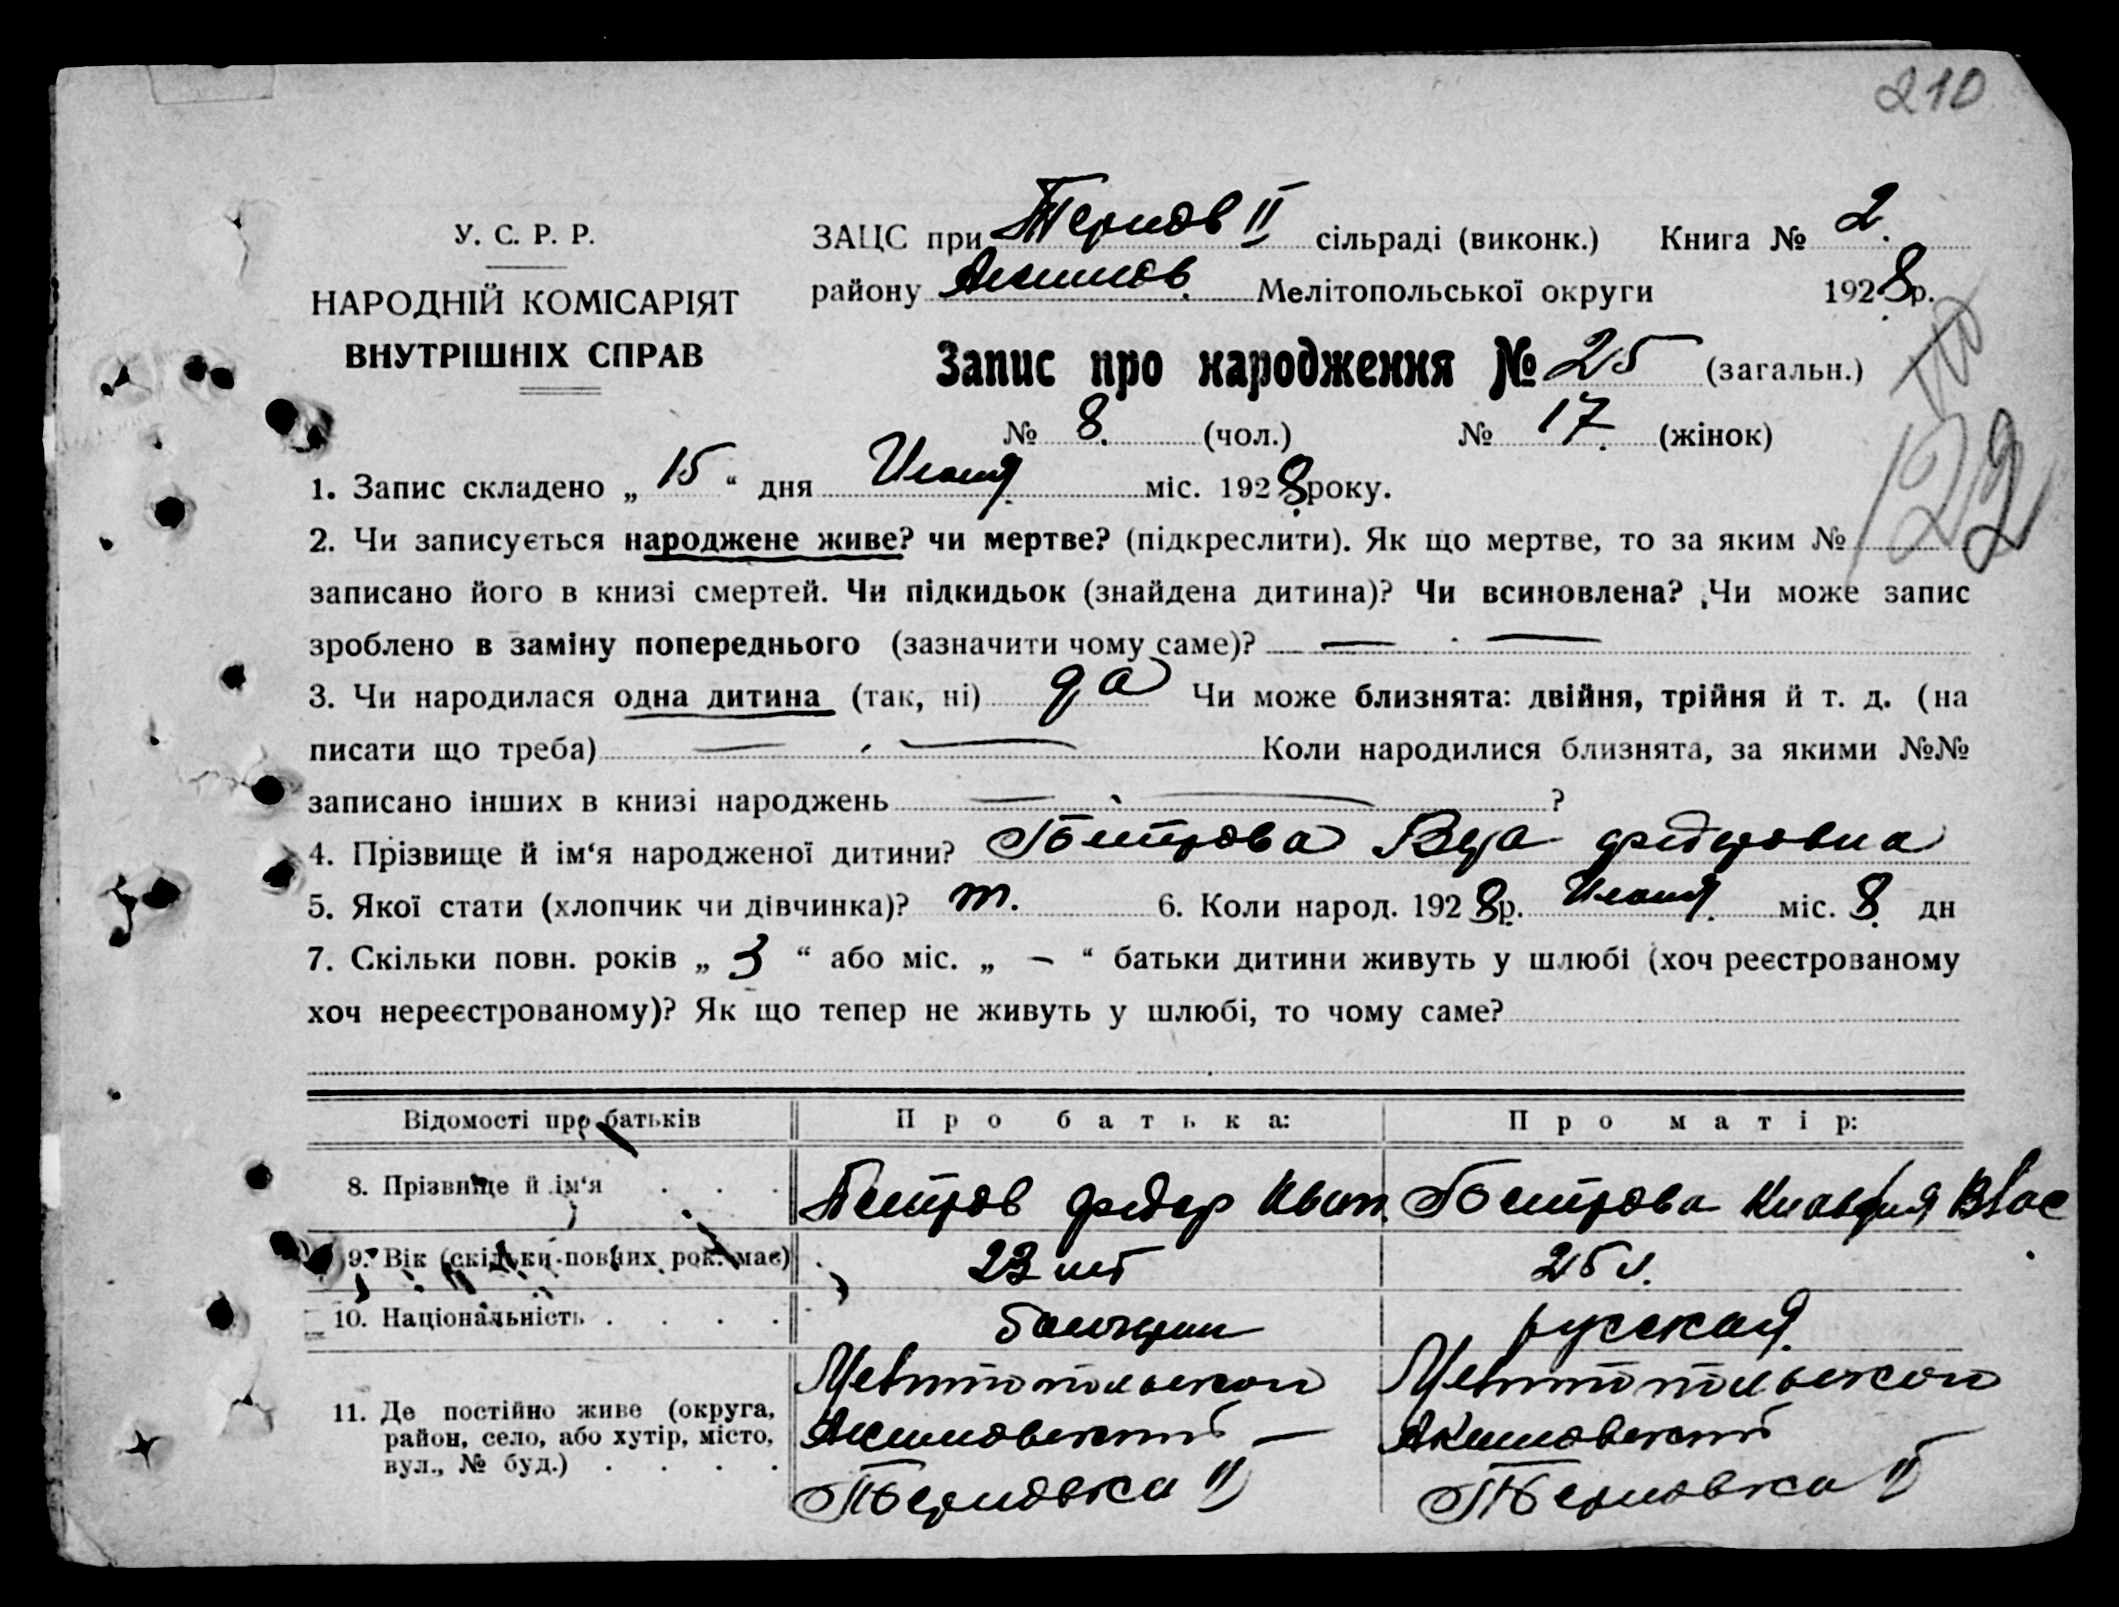 210
У. С. Р. Р.
НАРОДНІЙ КОМІСАРІЯТ
ВНУТРІШНІХ СПРАВ
ЗАЦС при Тернов II сільраді (виконк.) Книга № 2.
району Акимов. Мелітопольської округи 1928р.
Запис про народження № 25 (загальн.)
№ 8. (чол.) № 17. (жінок)
122
1. Запис складено „ 15 “ дня Июня міс. 1928 року.
2. Чи записується народжене живе? чи мертве? (підкреслити). Як що мертве, то за яким №
записано його в книзі смертей. Чи підкидьок (знайдена дитина)? Чи всиновлена? Чи може запис
зроблено в заміну попереднього (зазначити чому саме)? — —
3. Чи народилася одна дитина (так, ні) да Чи може близнята: двійня, трійня й т. д. (на
писати що треба) — — Коли народилися близнята, за якими №№
записано інших в книзі народжень — — ?
4. Прізвище й ім‘я народженої дитини? Петрова Вера Федоровна
5. Якої стати (хлопчик чи дівчинка)? 6. Коли народ. 1928р. Июня міс. 8. дн
7. Скільки повн. років „ 3 “ або міс. „ — “ батьки дитини живуть у шлюбі (хоч реєстрованому
хоч нереєстрованому)? Як що тепер не живуть у шлюбі, то чому саме?
Відомості про батьків Про батька: Про матір:
8. Прізвище й ім‘я . . . Петров Федор Петрова Клавдия Влас
9. Вік (скільки повних рок. має) 23 лет 25 л.
10. Національність . . . . русская
11. Де постійно живе (округа,
район, село, або хутір, місто,
вул., № буд.) . . . .
Мелитопольской
Акимовский —
Терновка II
Мелитопольской
Акимовский —
Терновка II